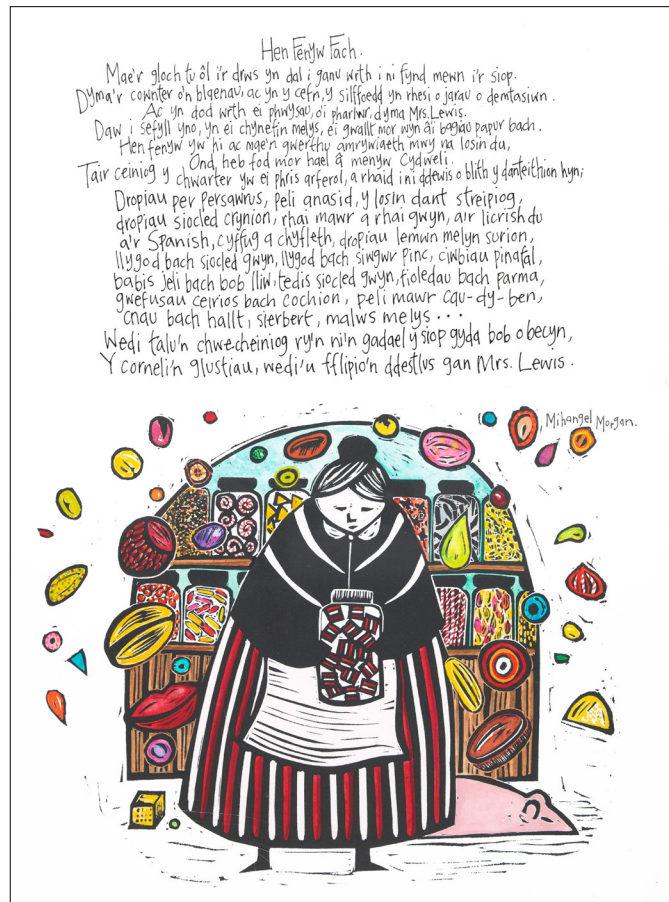 Hen Fenyw Fach.
Mae'r gloch tu ôl i'r drws yn dal i ganu wrth i ni fynd mewn i'r siop.
Dyma'r cownter o'n blaenau, ac yn y cefn, y silffoedd yn rhesi o jarau o demtasiwn.
Ac yn dod wrth ei phwysau, o'i pharlwr, dyma Mrs. Lewis.
Daw i sefyll yno, yn ei chynefin melys, ei gwallt mor wyn â'i bagiau papur bach.
Hen fenyw yw hi ac mae'n gwerthu amrywiaeth mwy na losin du,
Ond, heb fod mor hael â menyw Cydweli.
Tair ceiniog y chwarter yw ei phris arferol, a rhaid i ni ddewis o blith y danteithion hyn;
Dropiau per persawrus, peli anasid, y losin dant streipiog,
dropiau siocled crynion, rhai mawr a rhai gwyn, a'r licrish du
a'r Spanish, cyffug a chyfleth, dropiau lemwn melyn surion,
llygod bach siocled gwyn, llygod bach siwgwr pinc, ciwbiau pinafal,
babis jeli bach bob lliw, tedis siocled gwyn, fioledau bach parma,
gwefusau ceirios bach cochion, peli mawr cau-dy-ben,
cnau bach hallt, sierbert, malws melys ...
Wedi talu'n chwecheiniog ry'n ni'n gadael y siop gyda bob o becyn,
Y corneli'n glustiau, wedi'u fflipio'n ddestlus gan Mrs. Lewis.
Mihangel Morgan.